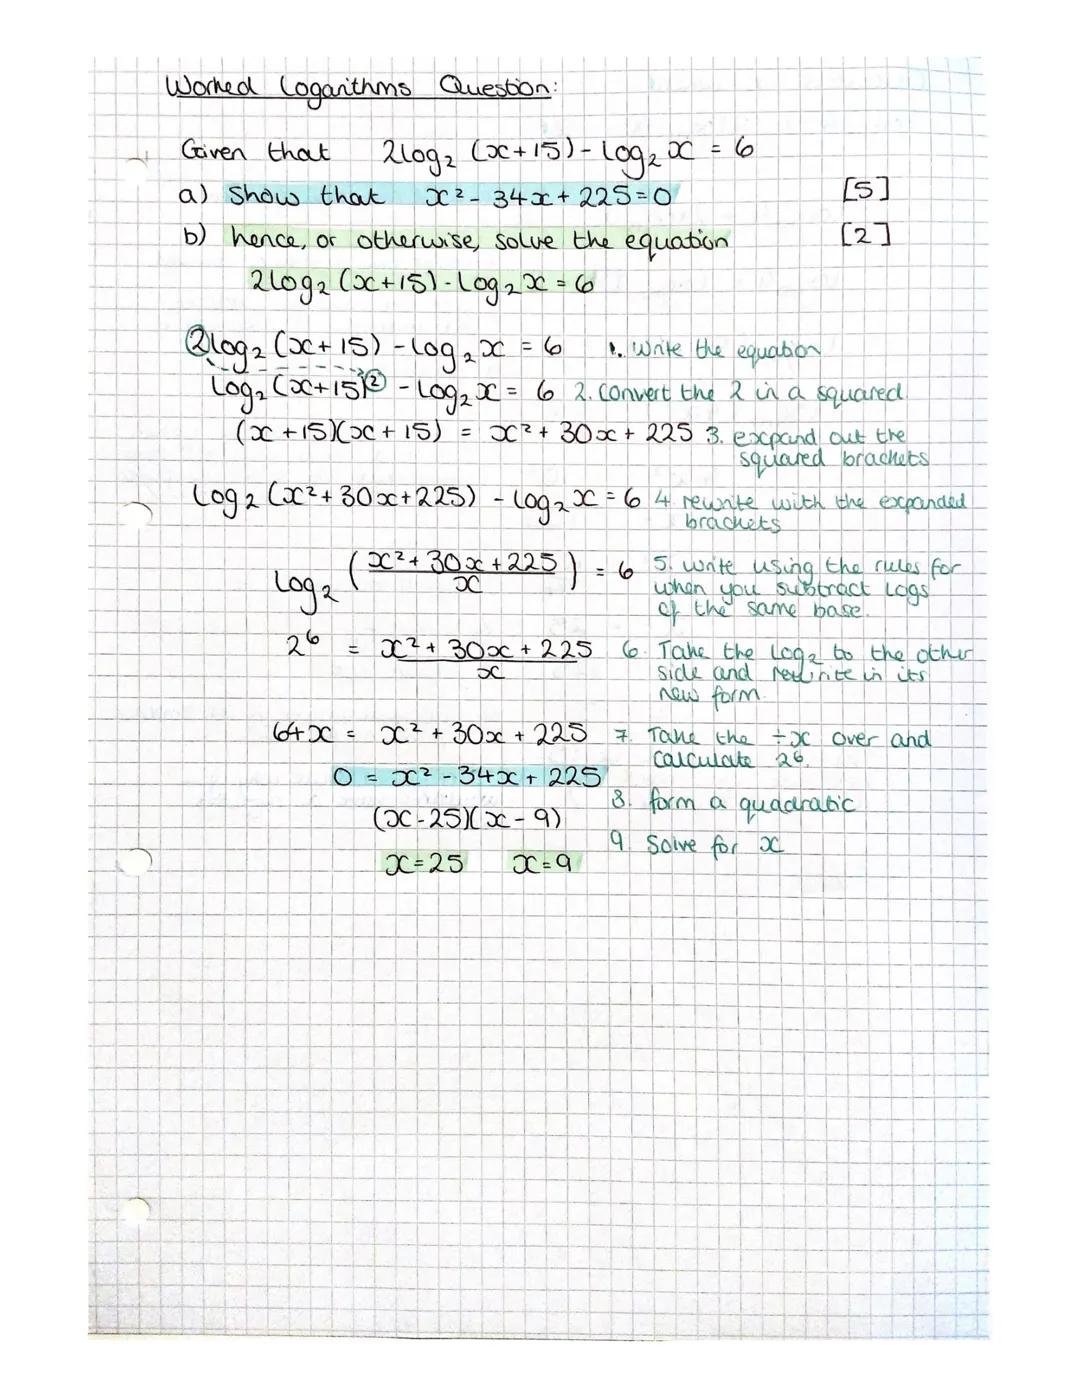 Worked Logarithms Question:
Given that 2log₂ (x+15) - log₂ x = 6
a) Show that x² - 34x + 225 = 0 [5]
b) hence, or otherwise, solve the equation [2]
2log₂ (x+15) - log₂ x = 6
2log₂ (x+15) - log₂ x = 6 1. Write the equation
log₂ (x+15)² - log₂ x = 6 2. Convert the 2 in a squared
(x+15)(x+15) = x² + 30x + 225 3. expand out the
squared brackets
log₂ (x²+30x+225) - log₂ x = 6 4. rewrite with the expanded
brackets
log₂ ((x²+30x+225)/x) = 6 5. write using the rules for
when you subtract logs
of the same base.
2⁶ = (x²+30x+225)/x 6. Take the log₂ to the other
side and rewrite in its
new form.
64x = x² + 30x + 225 7. Take the ÷x over and
calculate 2⁶.
0 = x² - 34x + 225
8. form a quadratic
(x-25)(x-9)
9. Solve for x
x=25 x=9